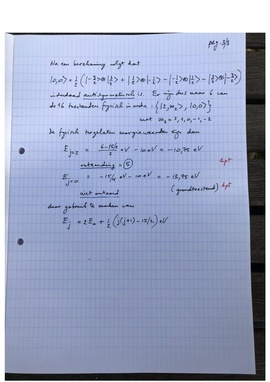 pag 3/3
Na een berekening volgt dat
|0,0> = 1/2 (|-3/2>⊗|3/2> + |1/2>⊗|-1/2> - |-1/2>⊗|1/2> - |3/2>⊗|-3/2>)
inderdaad antisymmetrisch is. Er zijn dus maar 6 van
de 16 toestanden fysisch in orde: {|2,m₂>, |0,0>}
met m₂ = 2,1,0,-1,-2
De fysisch toegelaten energiewaarden zijn dan
E_{j=2} = (6-15/2)/2 eV - 10 eV = -10,75 eV
ontaarding = 5
1pt
E_{j=0} = -15/4 eV - 10 eV = -13,75 eV
(grondtoestand) 1pt
niet ontaard
door gebruik te maken van
E_j = 2E_n + 1/2 (j(j+1) - 15/2) eV